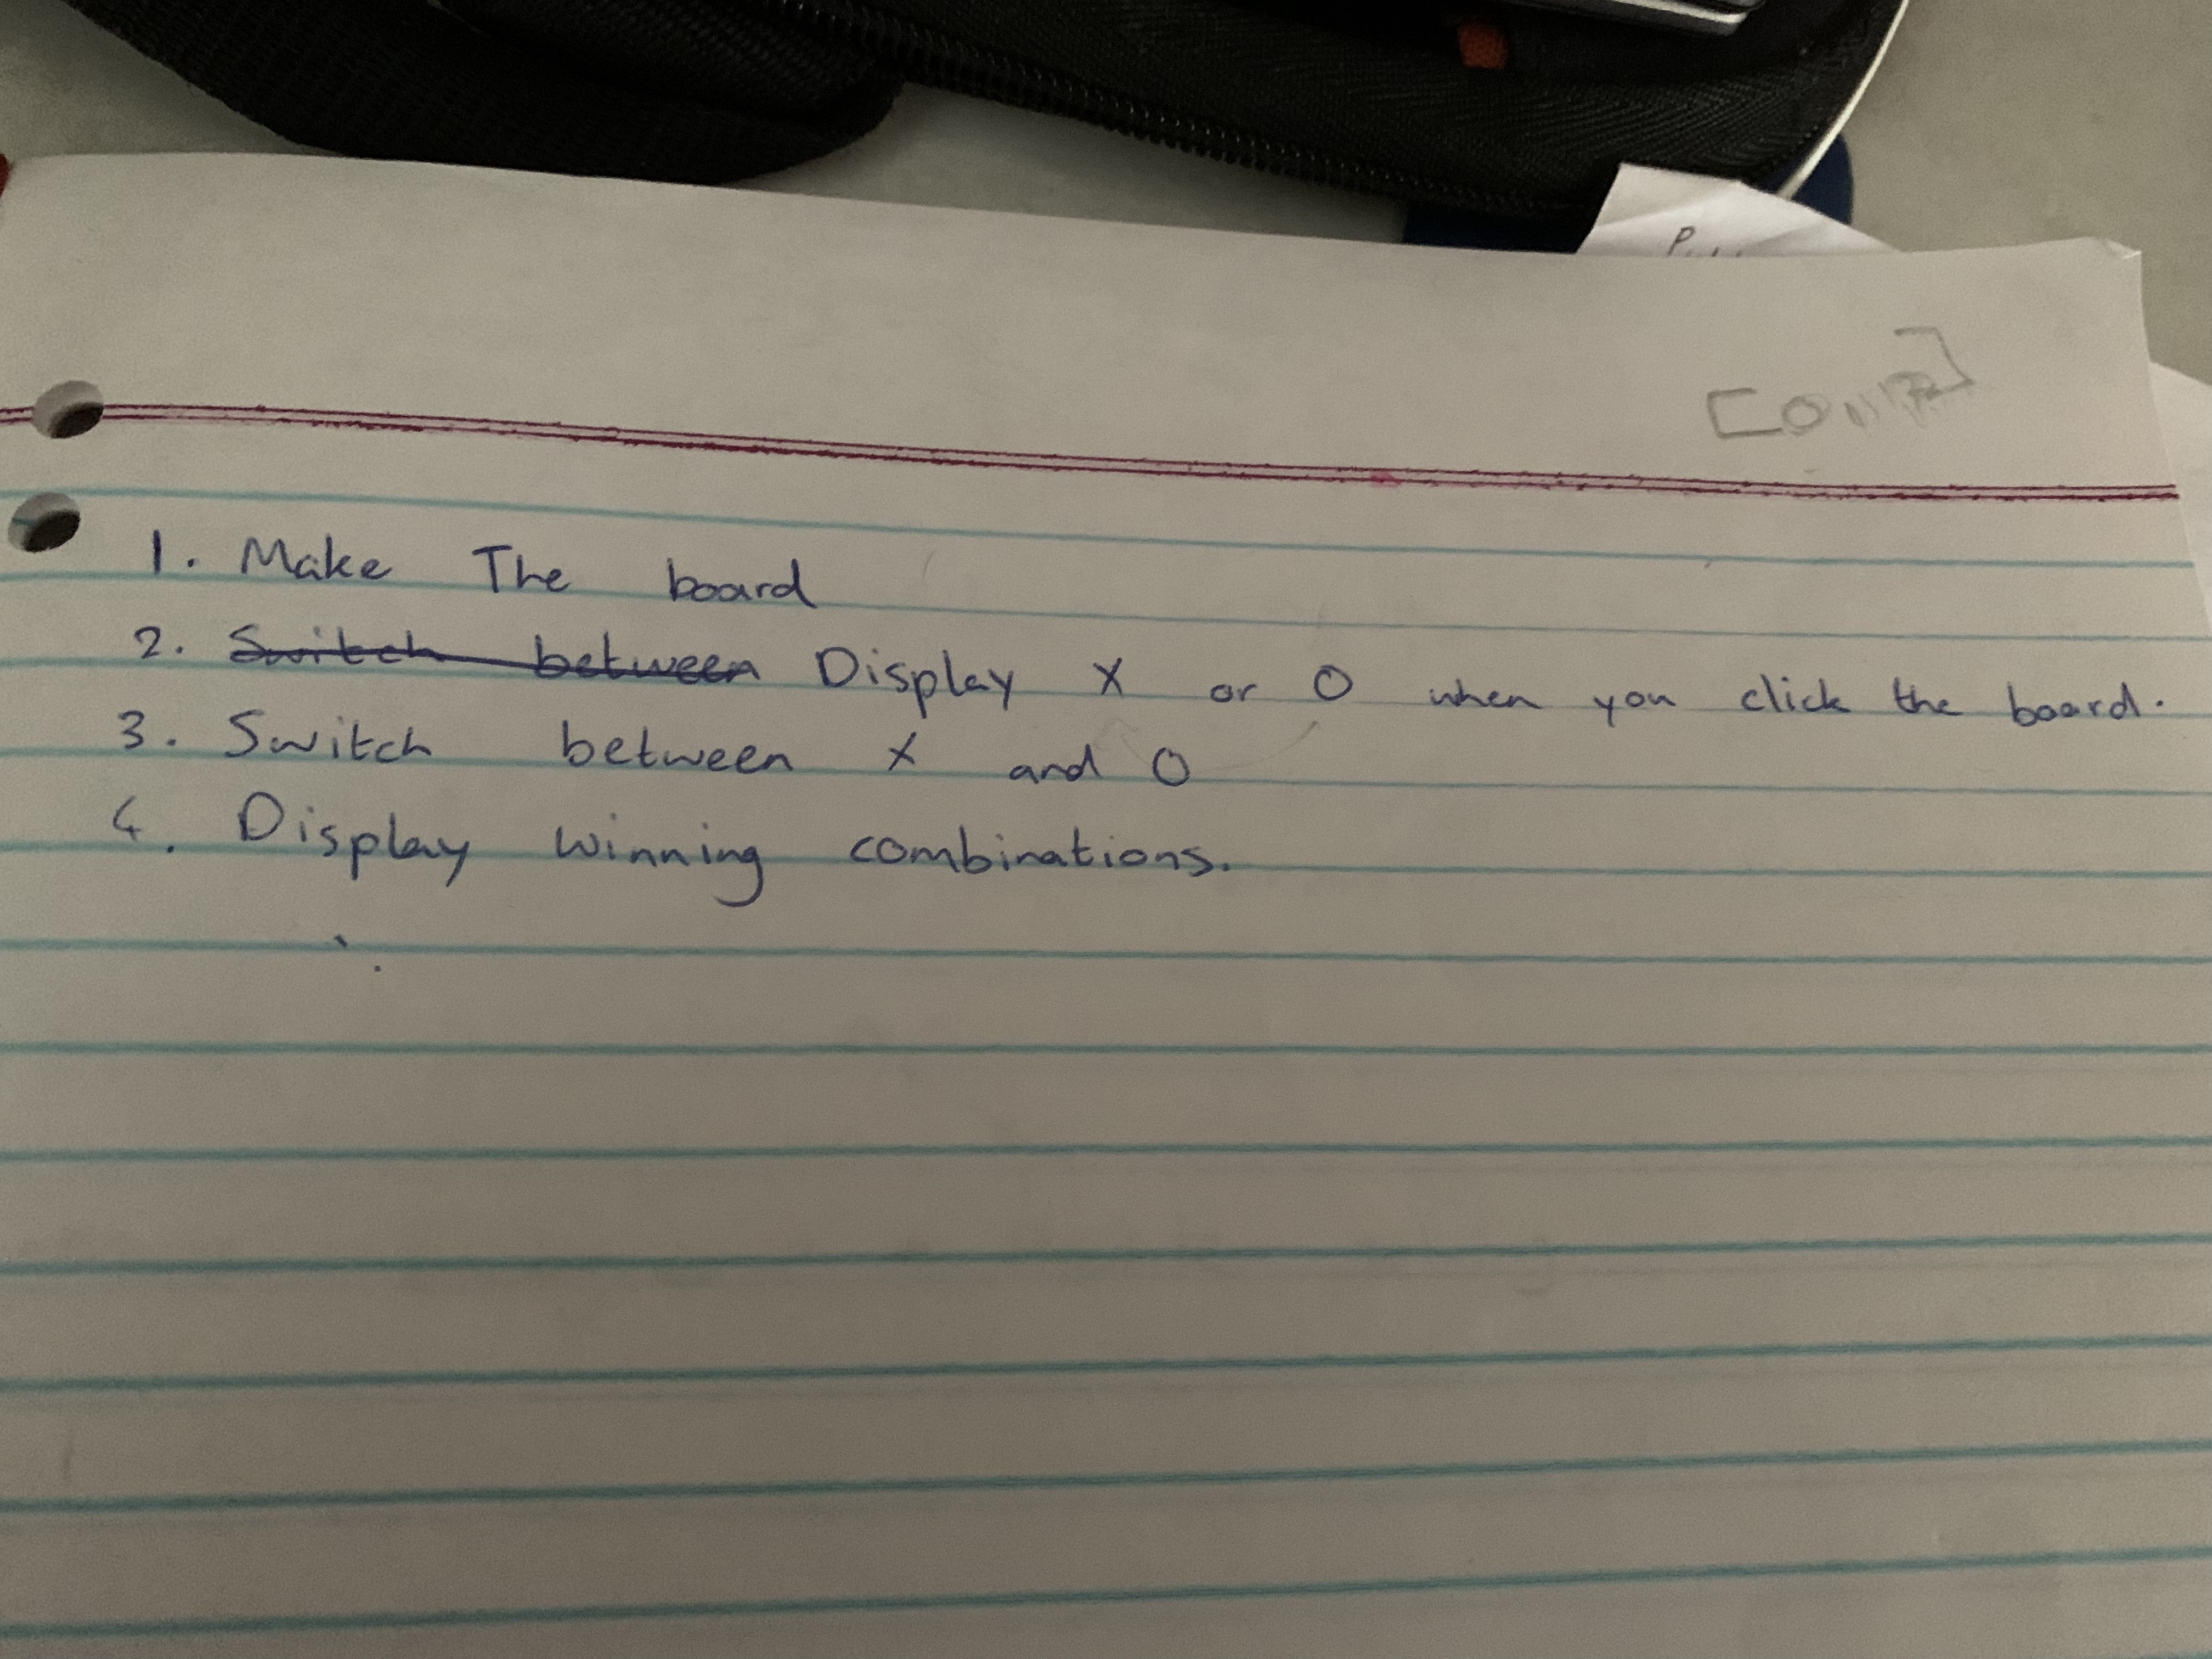 1. Make The board
2. ~~Switch between~~ Display X or O when you click the board.
3. Switch between X and O
4. Display winning combinations.